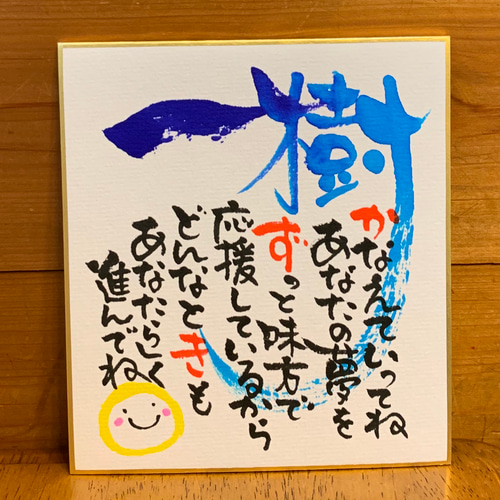 一樹
かなえていってね
あなたの夢を
ずっと味方で
応援しているから
どんなときも
あなたらしく
進んでね